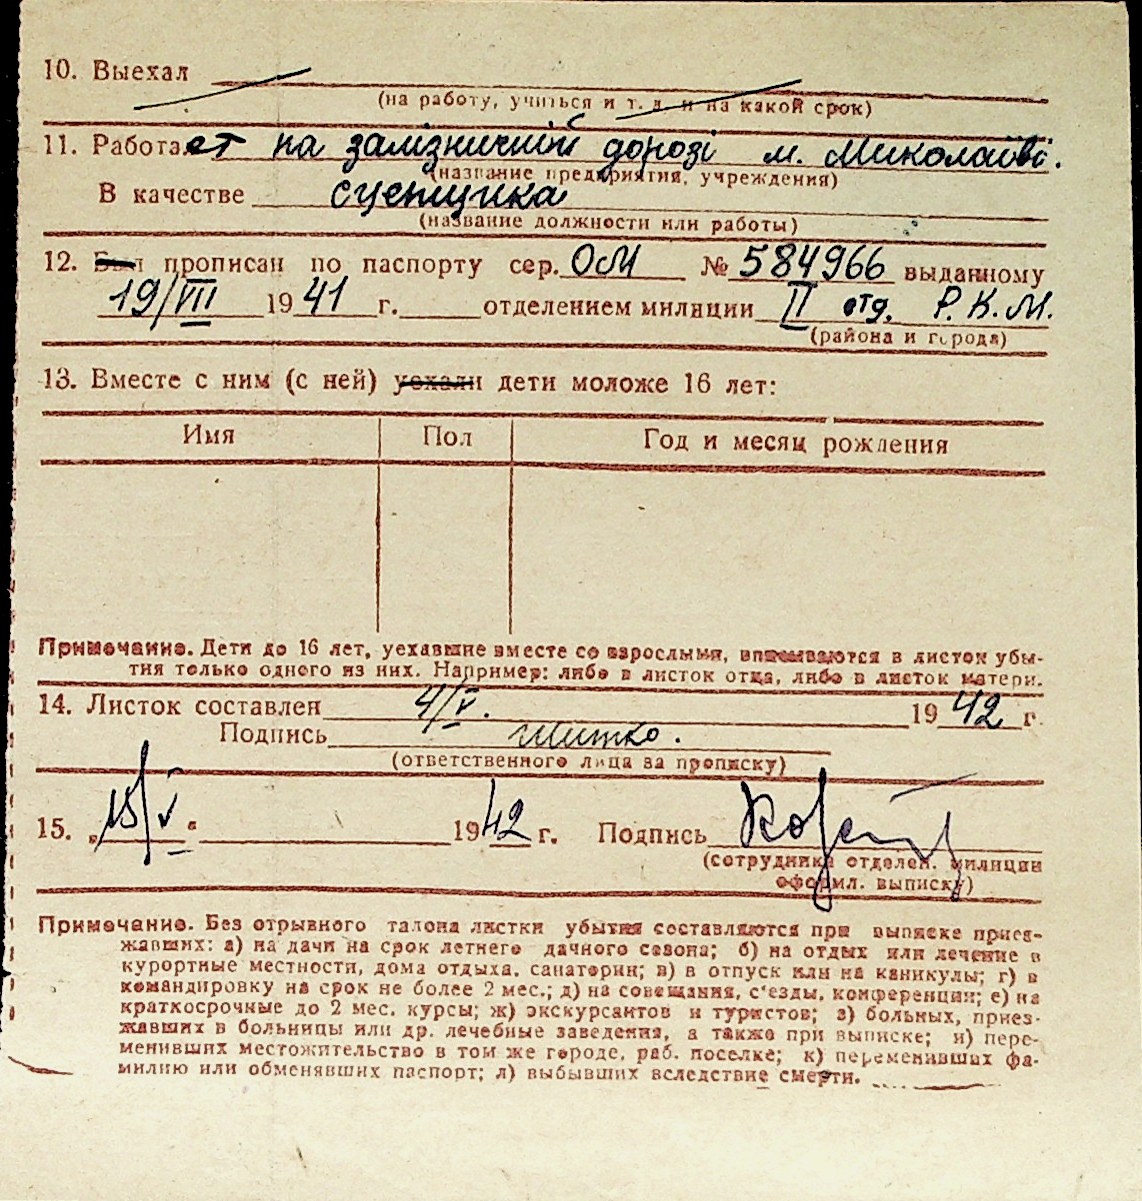 10. Выехал
(на работу, учиться и т. д. и на какой срок)
11. Работает на залізничній дорозі м. Миколаїві.
(название предприятия, учреждения)
В качестве сцепщика
(название должности или работы)
12. Был прописан по паспорту сер. ОМ № 584966 выданному
19/VII 1941 г. отделением милиции II отд. Р.К.М.
(района и города)
13. Вместе с ним (с ней) уехали дети моложе 16 лет:
Имя Пол Год и месяц рождения
Примечание. Дети до 16 лет, уехавшие вместе со взрослыми, вписываются в листок убы-
тия только одного из них. Например: либо в листок отца, либо в листок матери.
14. Листок составлен 4/V. 1942 г.
Подпись
(ответственного лица за прописку)
15. „15/V“ 1942 г. Подпись
(сотрудника отделен. милиции
оформл. выписку)
Примечание. Без отрывного талона листки убытия составляются при выписке приез-
жавших: а) на дачи на срок летнего дачного сезона; б) на отдых или лечение в
курортные местности, дома отдыха, санатории; в) в отпуск или на каникулы; г) в
командировку на срок не более 2 мес.; д) на совещания, с'езды, конференции; е) на
краткосрочные до 2 мес. курсы; ж) экскурсантов и туристов; з) больных, приез-
жавших в больницы или др. лечебные заведения, а также при выписке; и) пере-
менивших местожительство в том же городе, раб. поселке; к) переменивших фа-
милию или обменявших паспорт; л) выбывших вследствие смерти.